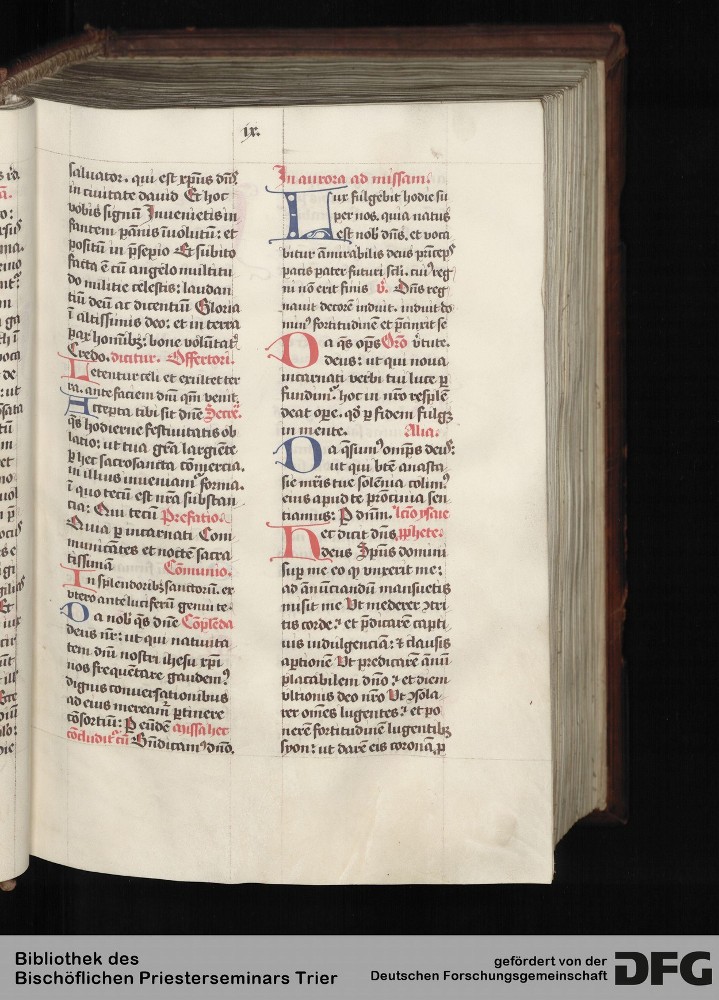 ix.
saluator. qui est xp̄us dn̄s
in ciuitate dauid Et hoc
vobis signū Inuenietis in
fantem pānis īuolutū: et
positū in p̄sepio Et subito
facta ē cū angelo multitu
do militie celestis: laudan
tiū deū ac dicentiū Gloria
ī altissimis deo: et in terra
pax hom̄ibꝫ: bone volūtat
Credo. dicitur. Offertori.
Letentur celi et exultet ter
ra. ante faciem dn̄i qm̄ venit.
Accepta tibi sit dn̄e Secre.
q̄s hodierne festiuitatis ob
latio: ut tua gr̄a largiēte
ꝑ hec sacrosancta cōmercia.
in illius inueniam̄ forma.
ī quo tecū est nr̄a substan
cia: Qui tecū Prefatio.
Quia ꝑ incarnati Com
municātes et noctē sacra
tissima Cōmunio.
In splendoribꝫ sanctorū. ex
vtero ante luciferū genui te.
Da nob̄ q̄s dn̄e Cōplēda
deus nr̄: ut qui natiuita
tem dn̄i nostri ihesu xp̄i
nos frequētare gaudemꝰ
dignis conuersationibus
ad eius meream̄ ꝑtinere
cōsortiū: P eūdē Missa hec
cōcludit̄ cū Bn̄dicamꝰ dn̄o.
In aurora ad missam.
Lux fulgebit hodie su
per nos. quia natus
est nob̄ dn̄s, et voca
bitur āmirabilis deus prīceps
pacis pater futuri scl̄i. cuiꝰ reg
ni nō erit finis v̄. Dn̄s reg
nauit decorē induit. induit do
minꝰ fortitudinē et p̄cinxit se
Da q̄s op̄s Oro v̄tute.
deus: ut qui noua
incarnati verbi tui luce ꝑ
fundim̄. hoc in nr̄o resplē
deat oꝑe. qd̄ ꝑ fidem fulgꝫ
in mente. Alia.
Da q̄sumꝰ omp̄s deus:
ut qui bt̄e anasta
sie mr̄is tue solēnia colimꝰ
eius apud te pr̄ocinia sen
tiamus: P dn̄m. lcīo ysaie
Hec dicit dn̄s, ꝓphete.
deus Sp̄us domini
suꝑ me eo qꝫ vnxerit me:
ad ānūciandū mansuetis
misit me Ut mederer ꝯtri
tis corde: et p̄dicarē capti
uis indulgenciā: ⁊ clausis
aꝑtionē Ut predicarē ānū
placabilem dn̄o: et diem
vltionis deo nr̄o Ut ꝯsola
rer om̄es lugentes: et po
nerē fortitudinē lugentibꝫ
syon: ut darē eis coronā, ꝓ
Bibliothek des
Bischöflichen Priesterseminars Trier
gefördert von der
Deutschen Forschungsgemeinschaft
DFG